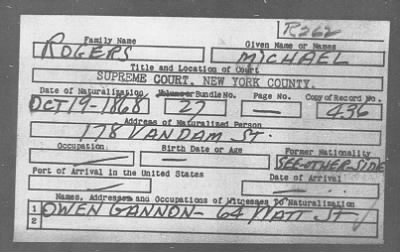 R262
Family Name Given Name or Names
ROGERS MICHAEL
Title and Location of Court
SUPREME COURT, NEW YORK COUNTY.
Date of Naturalization Volume or Bundle No. Page No. Copy of Record No.
OCT 19-1868 27 — 436
Address of Naturalized Person
178 VANDAM ST.
Occupation Birth Date or Age Former Nationality
— — SEE OTHER SIDE
Port of Arrival in the United States Date of Arrival
— —
Names, Addresses and Occupations of Witnesses To Naturalization
1 OWEN GANNON- 64 WATT ST
2